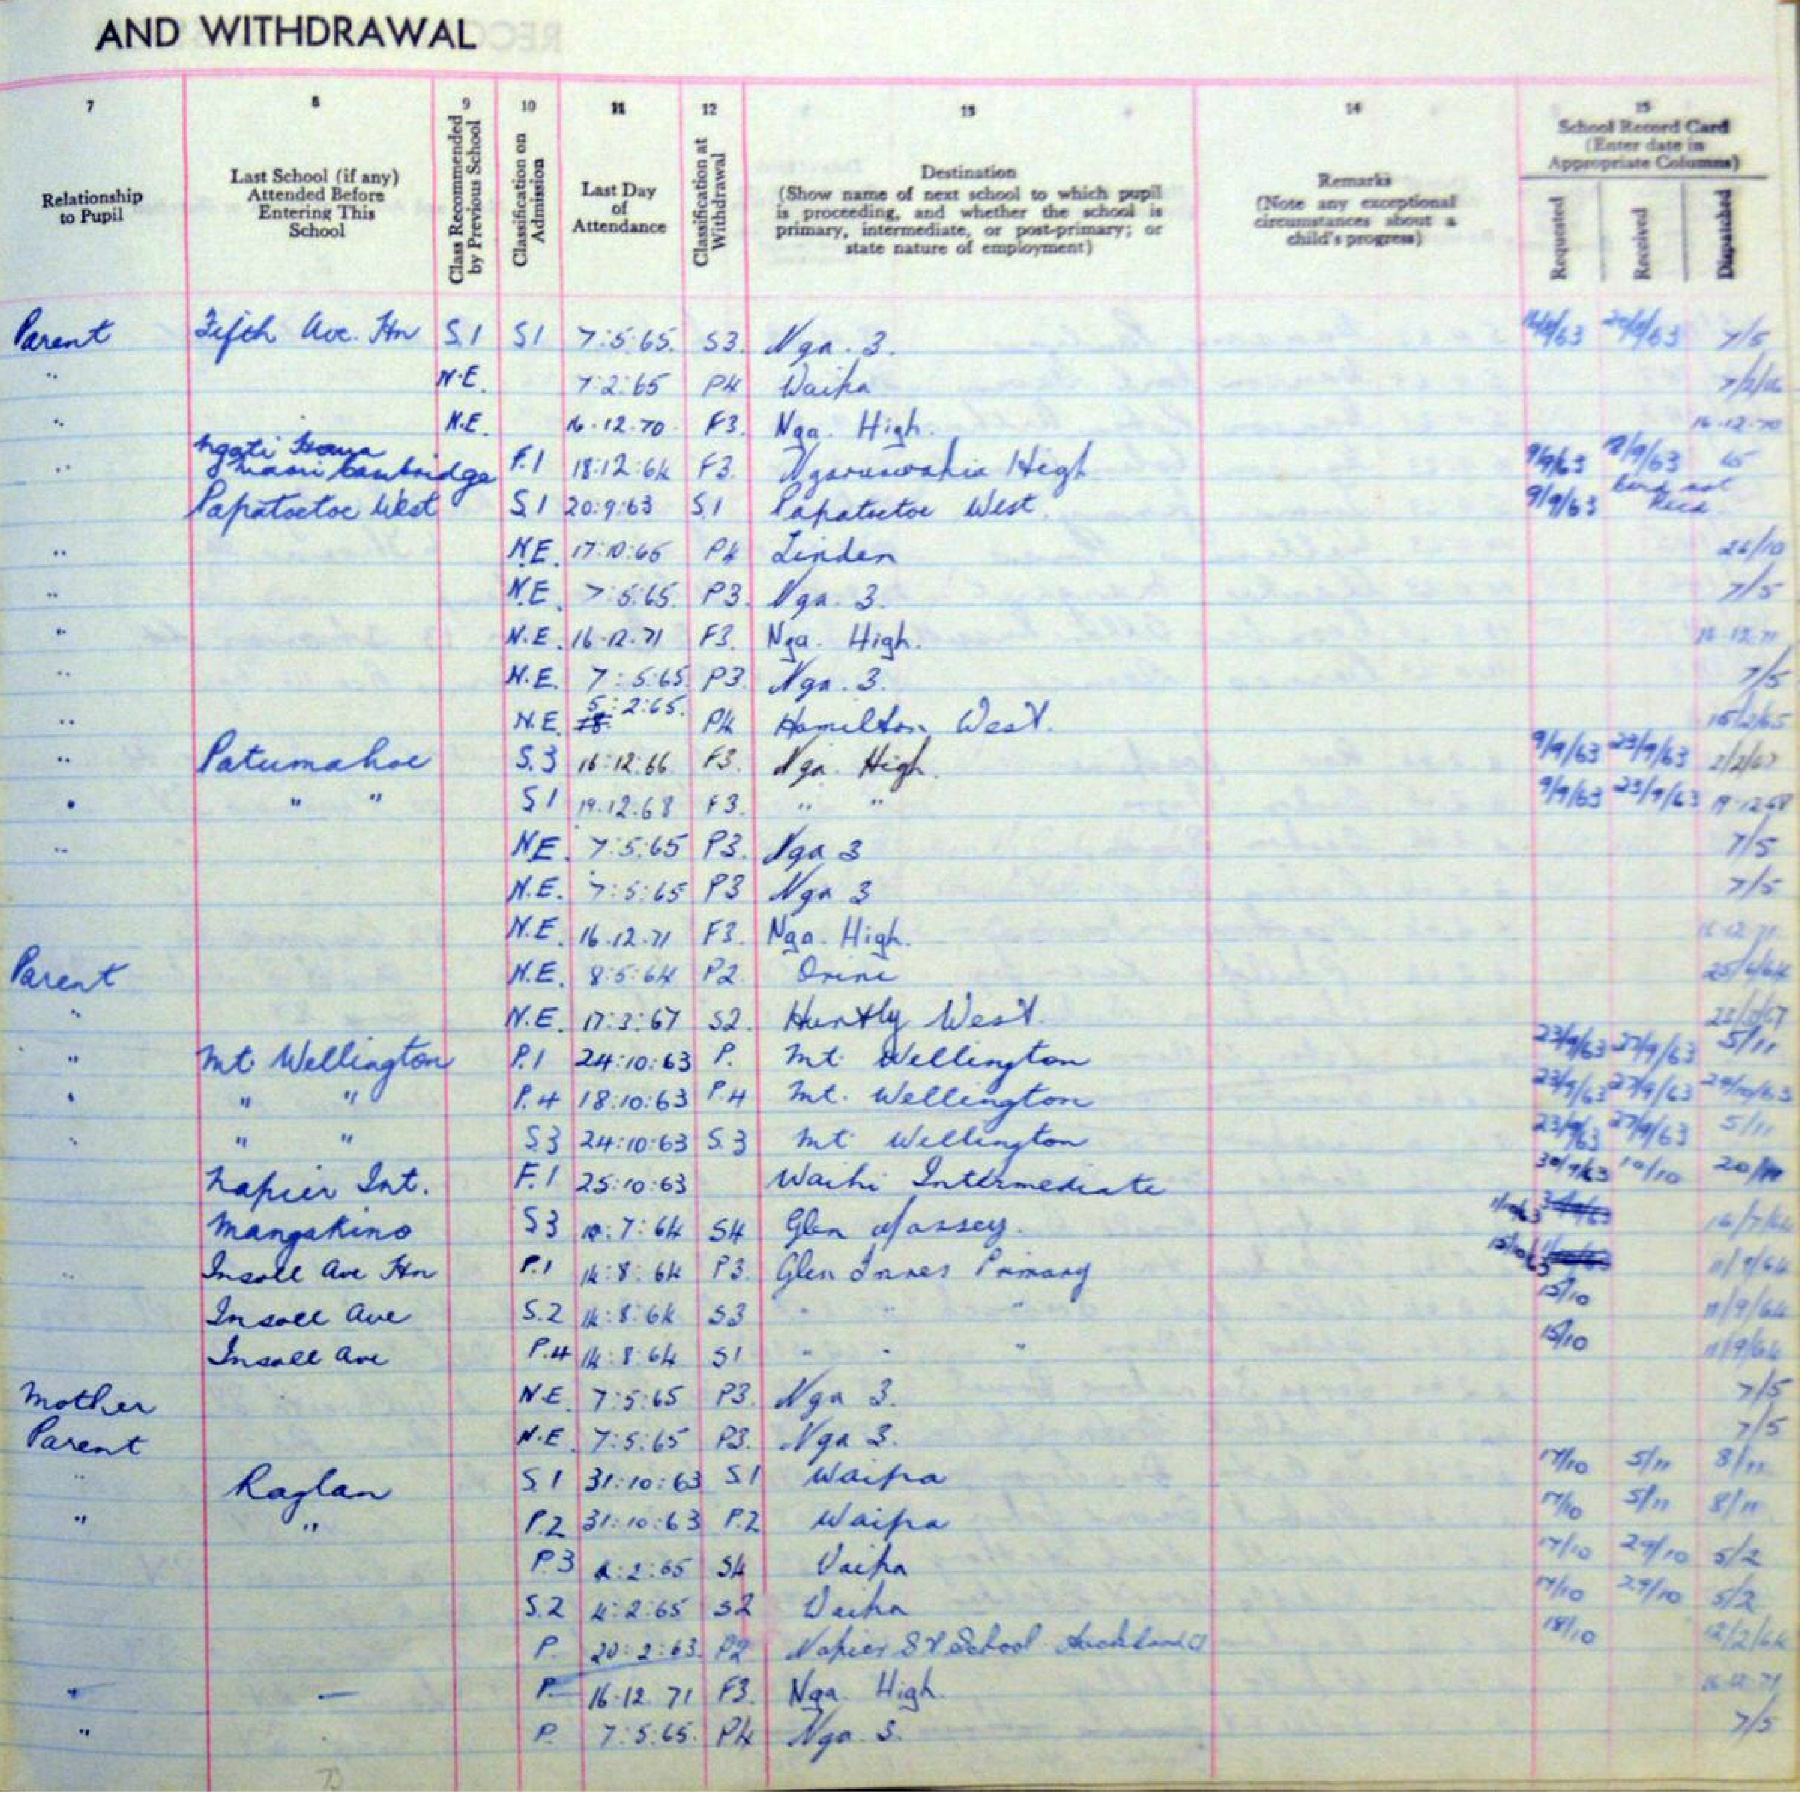 AND WITHDRAWAL
7 8 9 10 11 12 13 14 15
Relationship to Pupil
Last School (if any) Attended Before Entering This School
Class Recommended by Previous School
Classification on Admission
Last Day of Attendance
Classification at Withdrawal
Destination (Show name of next school to which pupil is proceeding, and whether the school is primary, intermediate, or post-primary; or state nature of employment)
Remarks (Note any exceptional circumstances about a child's progress)
School Record Card (Enter date in Appropriate Columns)
Requested Received Dispatched
Parent Fifth Ave. Hn S.1 S1 7:5:65. S3. Nga. 3. /63 /9/63 7/5
" N.E. 7:2:65 P4 Waipa
" N.E. 16.12.70 F3. Nga. High. 16.12.70
" Ngati
Maori Cambridge F.1 18:12:64 F3. Ngaruawahia High 9/9/63 /9/63
Papatoetoe West S.1 20:9:63 S.1 Papatoetoe West. 9/9/63 Card not Recd.
" N.E. 17:10:65 P4 Linden 26/10
" N.E. 7:5:65. P3. Nga. 3. 7/5
" N.E. 16.12.71 F3. Nga. High. 16.12.71
" N.E. 7:5:65 P3 Nga. 3. 7/5
" N.E. 5:2:65. P4 Hamilton West. 15/2/65
" Patumahoe S.3 16:12:66 F3. Nga. High. 9/9/63 23/9/63 2/2/67
" " " S1 19.12.68 F3. " " 9/9/63 23/9/63 19.12.68
" N.E. 7:5:65 P3. Nga 3 7/5
N.E. 7:5:65 P3 Nga 3 7/5
N.E. 16.12.71 F3. Nga. High. 16.12.71
Parent N.E. 8:5:64 P2. Orini 25/ /64
" N.E. 17:3:67 S2. Huntly West. /67
" Mt Wellington P.1 24:10:63 P. Mt Wellington 23/9/63 27/9/63 5/11
" " " P.4 18:10:63 P.4 Mt. Wellington 23/9/63 27/9/63 29/10/63
" " " S3 24:10:63 S.3 Mt Wellington 23/9/63 27/9/63 5/11
Napier Int. F.1 25:10:63 Waihi Intermediate 30/9/63 10/10 20/11
Mangakino S3 :7:64 S4 Glen Massey. 1/10/63
" Insoll Ave Hn P.1 14:8:64 P3. Glen Innes Primary 11/9/64
Insoll Ave S.2 14:8:64 S3 " " " 15/10 11/9/64
Insoll Ave P.4 14:8:64 S1 " " " 15/10 11/9/64
Mother N.E. 7:5:65 P3. Nga 3. 7/5
Parent N.E. 7:5:65 P3. Nga 3. 7/5
" Raglan S.1 31:10:63 S.1 Waipa 17/10 5/11 8/11
" " P.2 31:10:63 P.2 Waipa 17/10 5/11 8/11
P.3 4:2:65 S4 Waipa 17/10 29/10 5/2
S.2 4:2:65 S2 Waipa 17/10 29/10 5/2
P. 20:2:63. P2 Napier St School Auckland 18/10 12/2/64
" — P. 16.12.71 F3. Nga. High. 16.12.71
" P. 7:5:65. P4 Nga. 3. 7/5